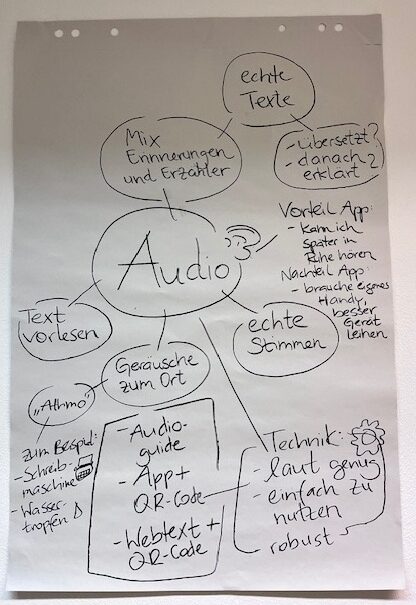 echte
Texte
Mix
Erinnerungen
und Erzähler
- übersetzt?
- danach
erklärt?
Audio
Vorteil App:
- kann ich
später in
Ruhe hören
Nachteil App:
- brauche eigenes
Handy,
besser
Gerät
leihen
Text
vorlesen
echte
Stimmen
Geräusche
zum Ort
„Athmo"
zum Beispiel:
- Schreib-
maschine
- Wasser-
tropfen
- Audio-
guide
- App +
QR-Code
- Webtext +
QR-Code
Technik:
- laut genug
- einfach zu
nutzen
- robust